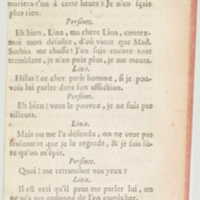 mariera-t'on à cette heure? Je n'en sçais
plus rien.
Persinet.
Eh bien, Lina, ma chere Lina, contez-
moi mon désastre, d'où vient que Mad.
Sachia me chasse? J'en suis encore tout
tremblant, je n'en puis plus, je me meurs.
Lina.
Hélas! ce cher petit homme, si je pou-
vois lui parler dans son affliction.
Persinet.
Eh bien! vous le pouvez, je ne suis pas
ailleurs.
Lina.
Mais on me l'a défendu, on ne veut pas
seulement que je le regarde, & je suis sûre
qu'on m'épie.
Persinet.
Quoi! me retrancher vos yeux?
Lina.
Il est vrai qu'il peut me parler lui, on
ne m'a pas ordonné de l'en empêcher.